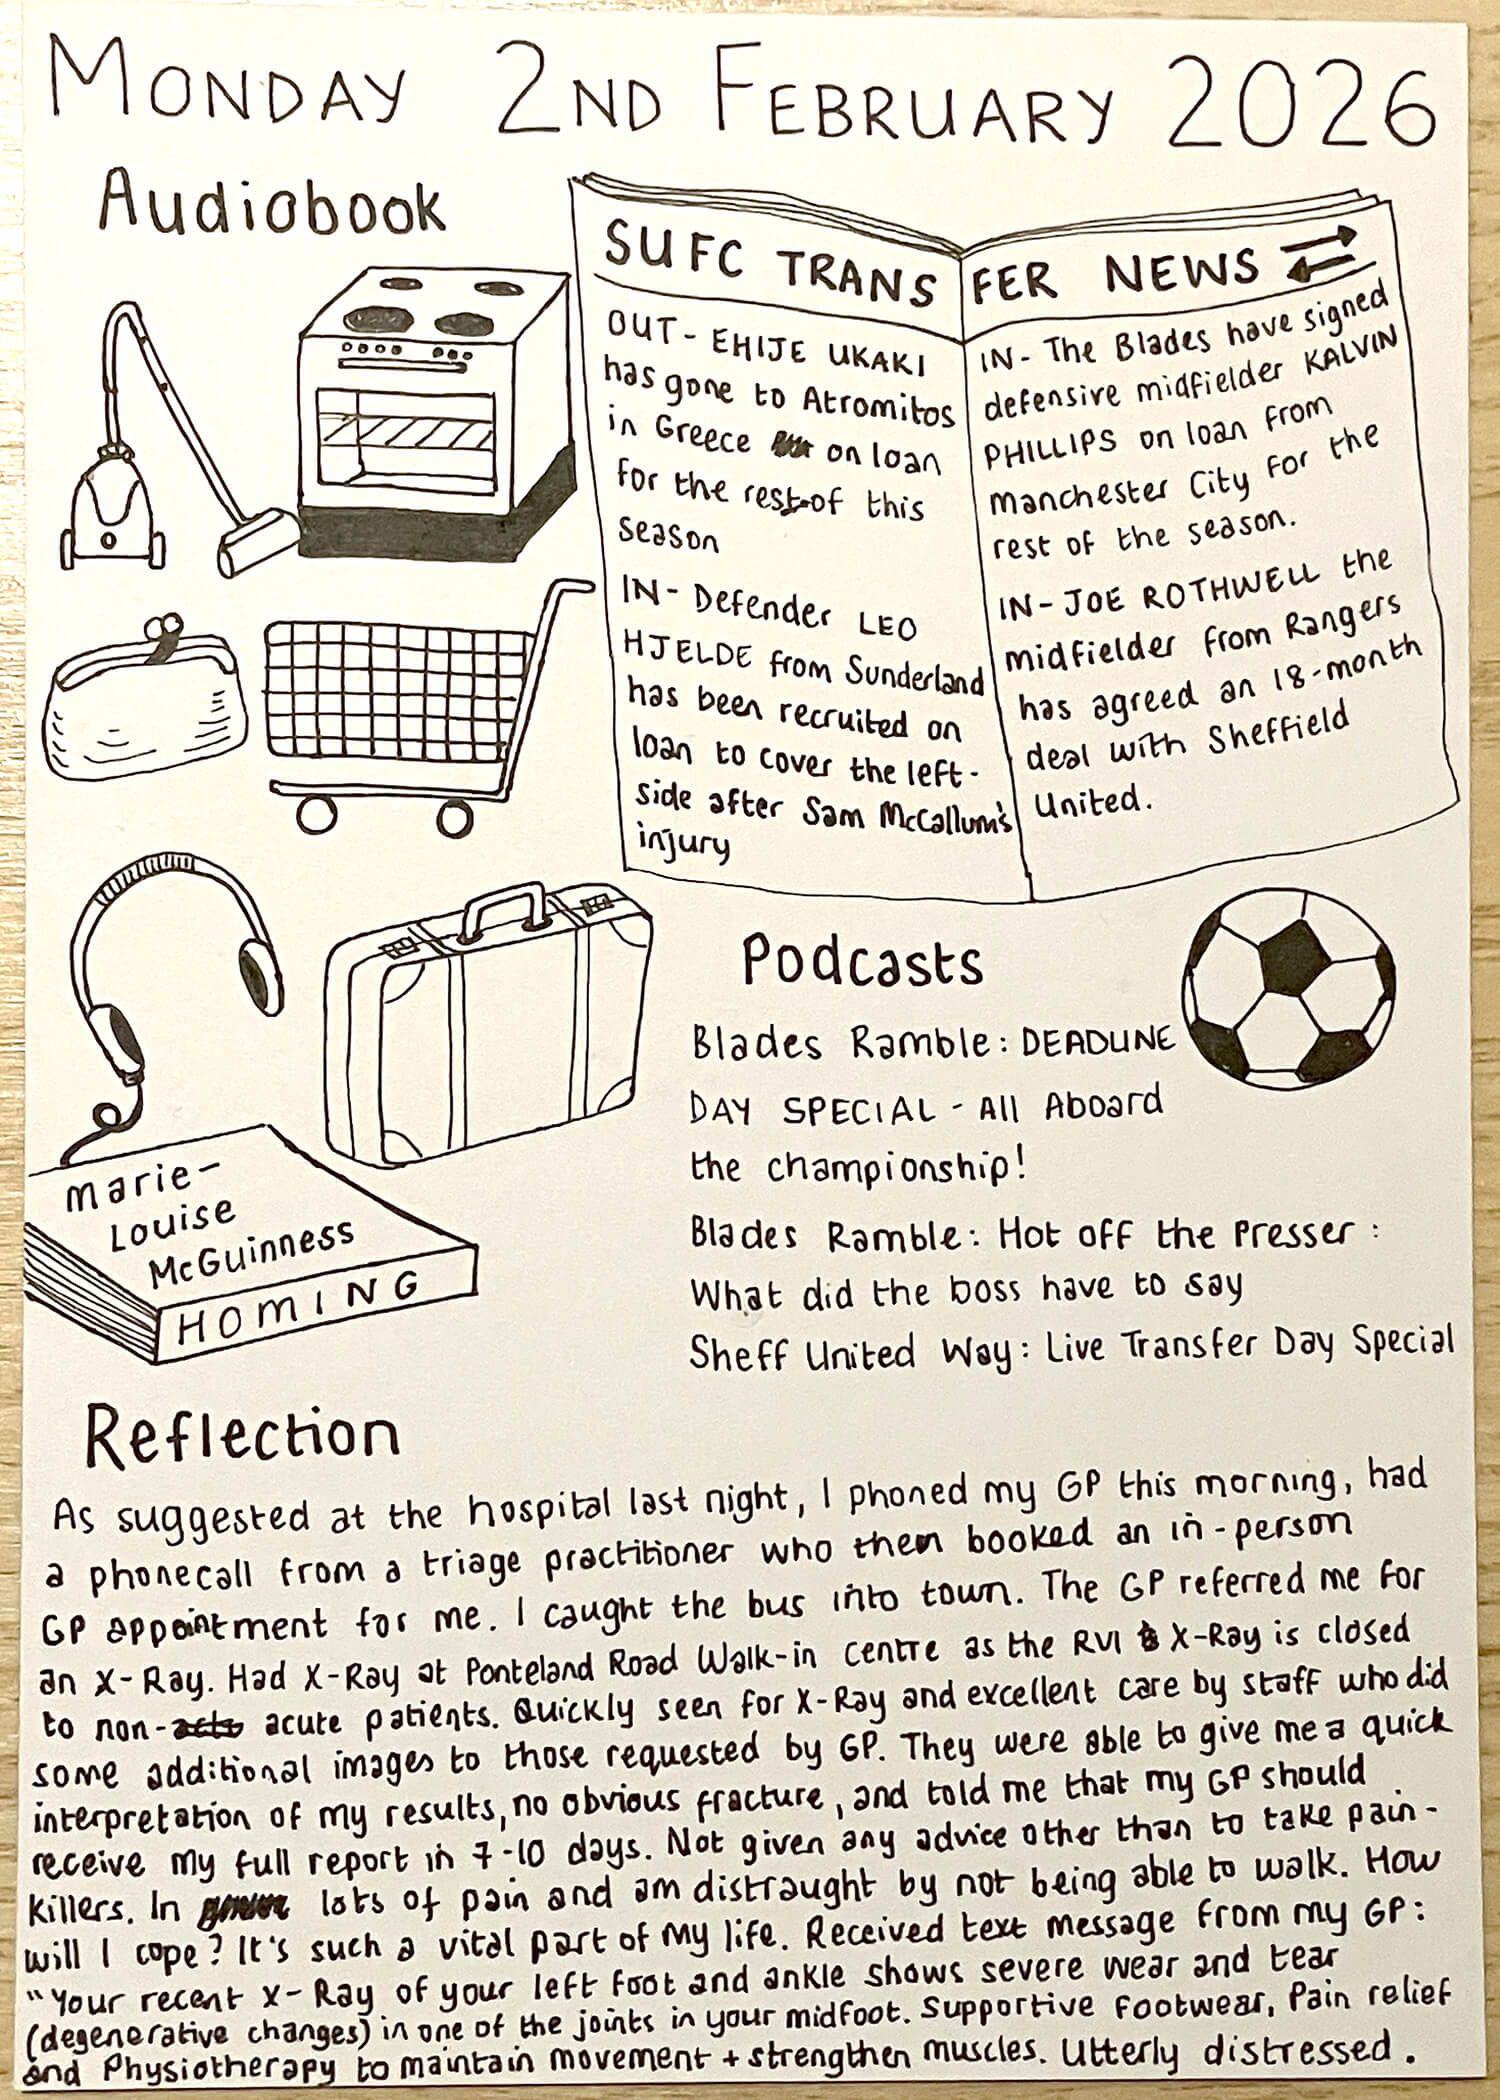 MONDAY 2ND FEBRUARY 2026
Audiobook
SUFC TRANSFER NEWS
OUT - EHIJE UKAKI
has gone to Atromitos
in Greece on loan
for the rest of this
season
IN - Defender LEO
HJELDE from Sunderland
has been recruited on
loan to cover the left-
side after Sam McCallum's
injury
IN - The Blades have signed
defensive midfielder KALVIN
PHILLIPS on loan from
manchester City for the
rest of the season.
IN - JOE ROTHWELL the
midfielder from Rangers
has agreed an 18-month
deal with Sheffield
United.
marie-
Louise
McGuinness
HOMING
Podcasts
Blades Ramble: DEADLINE
DAY SPECIAL - All Aboard
the championship!
Blades Ramble: Hot off the Presser:
What did the boss have to say
Sheff United Way: Live Transfer Day Special
Reflection
As suggested at the hospital last night, I phoned my GP this morning, had
a phonecall from a triage practitioner who then booked an in-person
GP appointment for me. I caught the bus into town. The GP referred me for
an X-Ray. Had X-Ray at Ponteland Road Walk-in centre as the RVI X-Ray is closed
to non- acute patients. Quickly seen for X-Ray and excellent care by staff who did
some additional images to those requested by GP. They were able to give me a quick
interpretation of my results, no obvious fracture, and told me that my GP should
receive my full report in 7-10 days. Not given any advice other than to take pain-
killers. In lots of pain and am distraught by not being able to walk. How
will I cope? It's such a vital part of my life. Received text message from my GP:
"Your recent X-Ray of your left foot and ankle shows severe wear and tear
(degenerative changes) in one of the joints in your midfoot. Supportive footwear, Pain relief
and Physiotherapy to maintain movement + strengthen muscles. Utterly distressed.